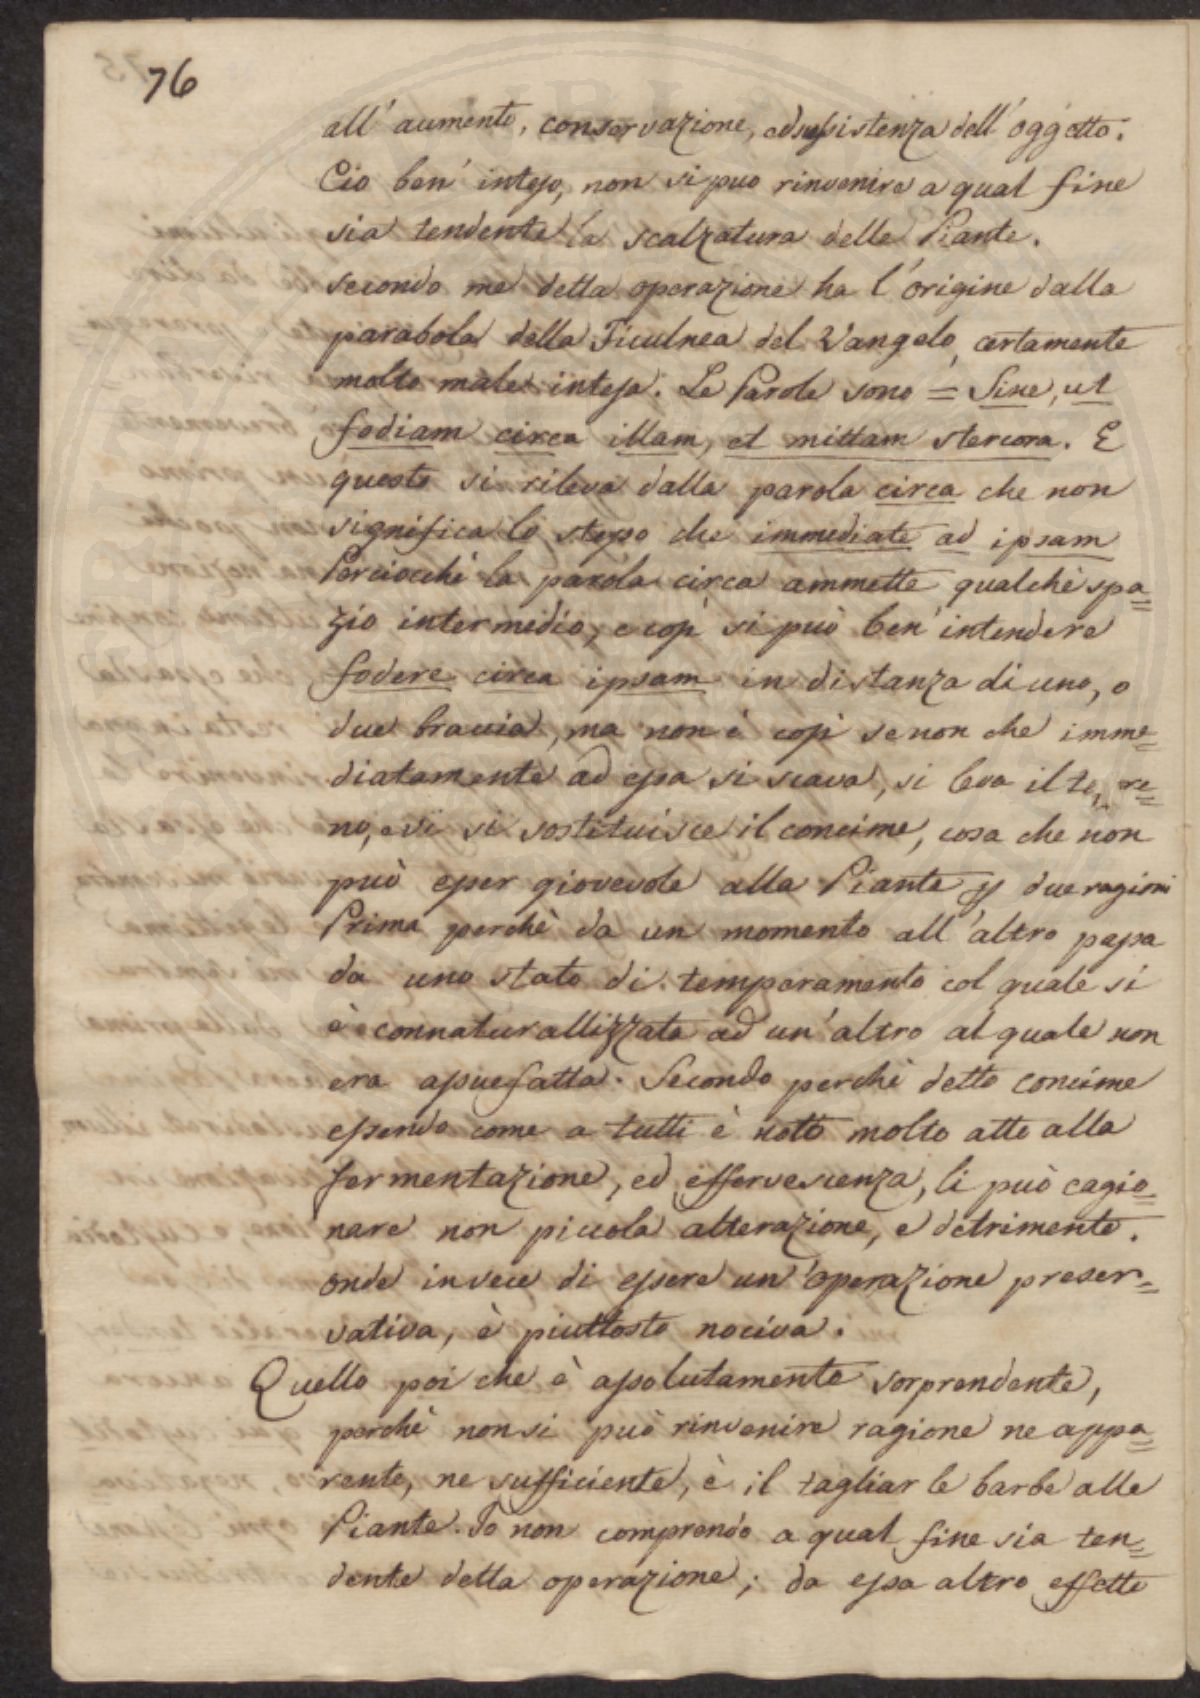 76
all' aumento, conservazione, ed sussistenza dell' oggetto.
Cio ben' inteso, non si puo rinvenire a qual fine
sia tendente la scalzatura delle Piante.
secondo me detta operazione ha l'origine dalla
parabola della Ficulnea del Vangelo, certamente
molto male intesa. Le Parole sono = Sine, ut
fodiam circa illam, et mittam stercora. E
questo si rileva dalla parola circa che non
significa lo stesso che immediate ad ipsam
Perciocchè la parola circa ammette qualchè spa=
zio intermedio, e così si può ben' intendere
fodere circa ipsam in distanza di uno, o
due braccia, ma non è così se non che imme=
diatamente ad essa si scava, si leva il te,re=
no, e vi si sostituisce il concime, cosa che non
può esser giovevole alla Piante p due ragioni
Prima perchè da un momento all' altro passa
da uno stato di temperamento col quale si
è connaturallizzata ad un' altro al quale non
era assuefatta. Secondo perchè detto concime
essendo come a tutti è noto molto atto alla
fermentazione, ed effervescenza, li può cagio=
nare non piccola alterazione, e detrimento.
onde invece di essere un' operazione preser=
vativa, è piuttosto nociva.
Quello poi che è assolutamente sorprendente,
perchè non si può rinvenire ragione ne appa=
rente, ne sufficiente, è il tagliar le barbe alle
Piante. Io non comprendo a qual fine sia ten=
dente detta operazione; da essa altro effetto